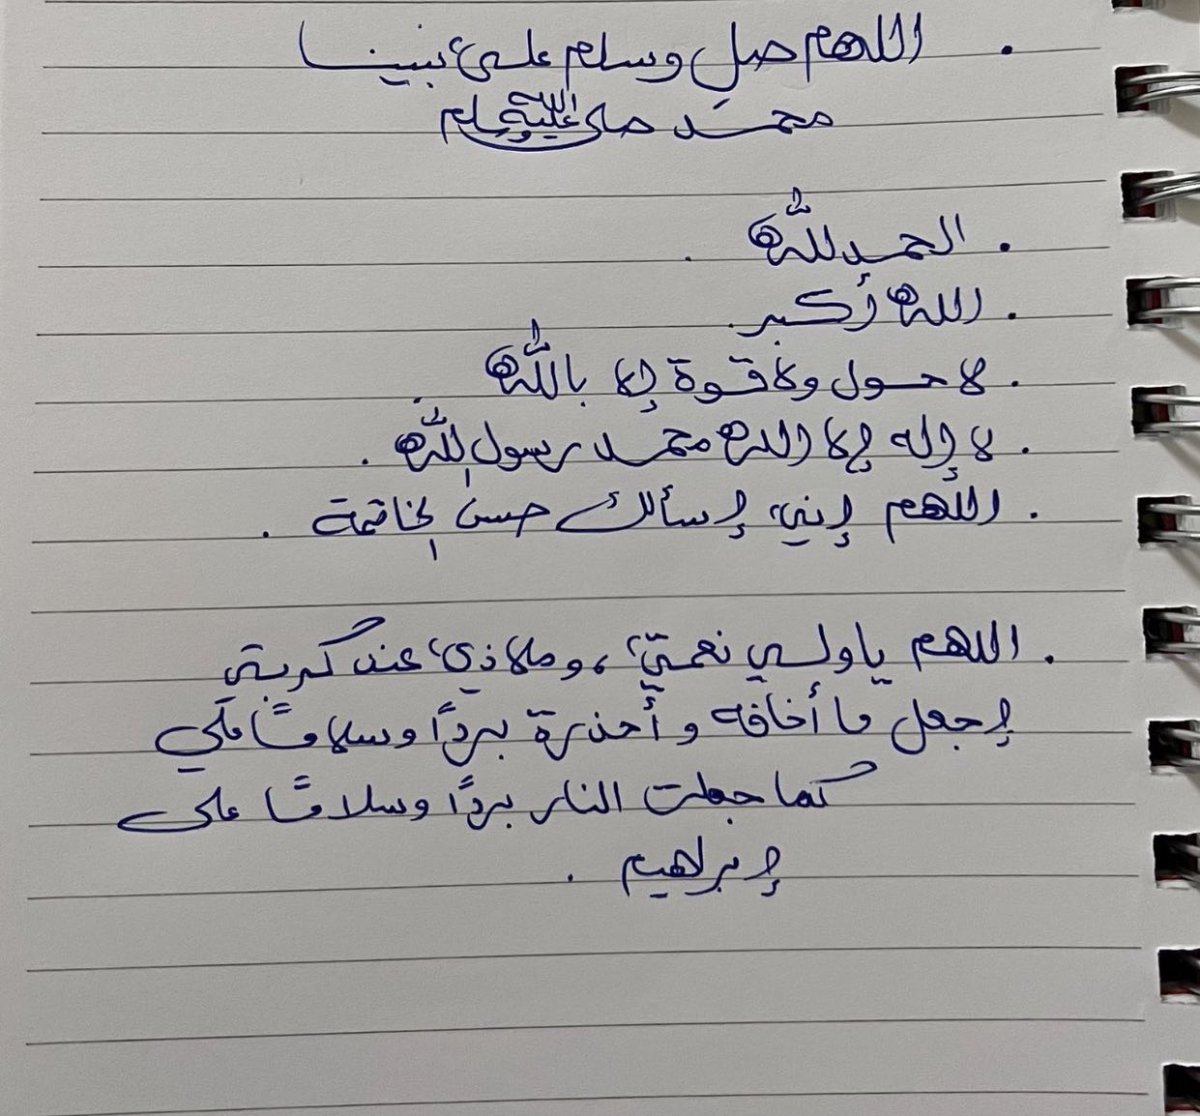 . اللهم صلِ وسلم على نبينا
محمد صلى الله عليه وسلم
. الحمد لله .
. الله أكبر .
. لا حول ولا قوة إلا بالله .
. لا إله إلا الله محمد رسول الله .
. اللهم إني إسألك حسن الخاتمة .
. اللهم يا ولي نعمتي، وملاذي عند كربتي
إجعل ما أخافه وأحذرة بردًا وسلامًا علي
كما جعلت النار بردًا وسلامًا على
إبراهيم .